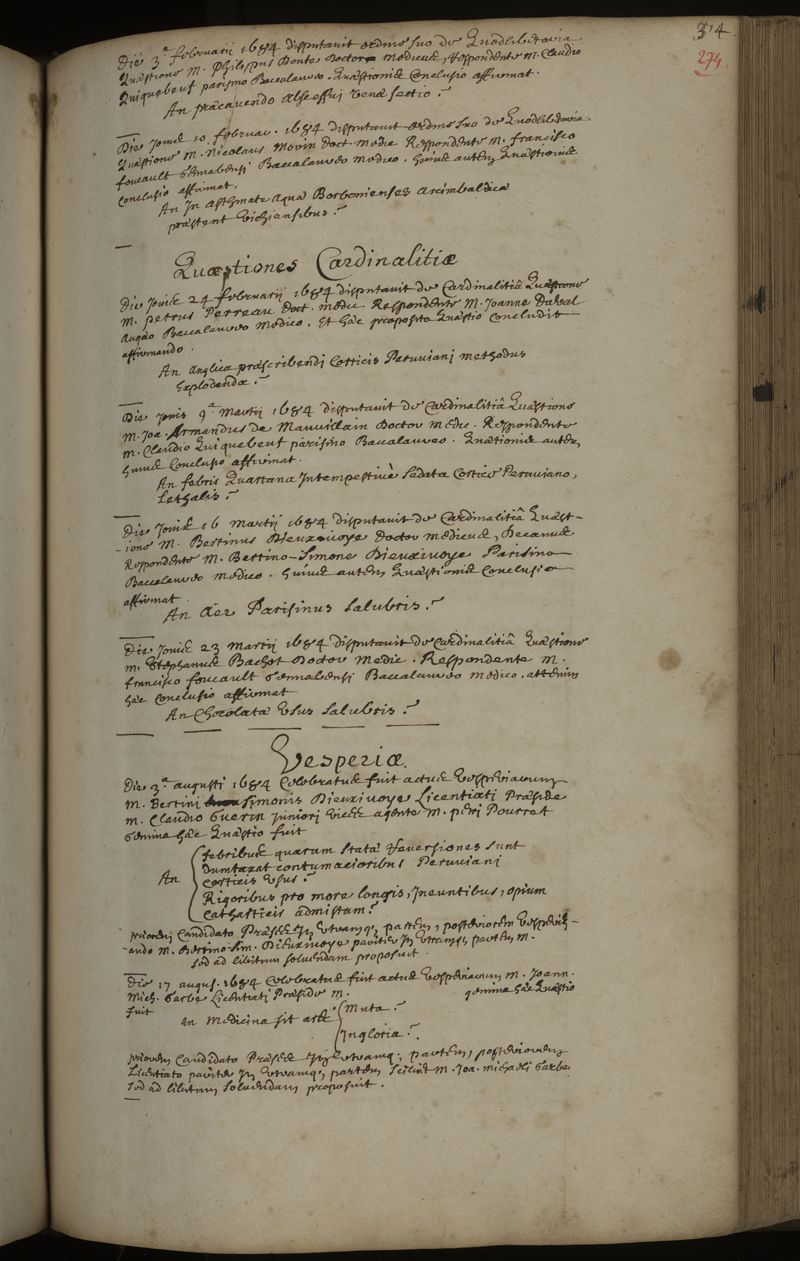 314
274
Die 3.ª februarij 1684 disputavit ordine suo de Quodlibetaria
Quæstione M. Philippus Doute Doctor Medicus, Respondente M. Claudio
Quiquebeuf parisino Baccalaureo. Quæstionis Conclusio affirmat.
An præcavendo venæ sectio?
Die Jovis 10 februar. 1684 disputavit ordine suo de Quodlibetaria
Quæstione M. Nicolaus Morin Doct. Medic. Respondente M. francisco
foucault Genabensi Baccalaureo medico. hujus autem Quæstionis
Conclusio affirmat.
An In asthmate aquæ Borbonienses Arcimbaldicæ
præstent Vichiensibus?
Quæstiones Cardinalitiæ
Die Jovis 24 februarij 1684 disputavit de Cardinalitiâ Quæstione
M. petrus Perreau Doct. medic. Respondente M. Joanne
Baccalaureo medico. Et hæc proposito Quæstio Concludit
affirmando.
An Anglica præscribendi Corticis Peruviani methodus
Explodenda?
Die Jovis 9.ª Martij 1684 disputavit de Cardinalitiâ Quæstione
M. Joa. Armandus de Mauvillain Doctor Medic. Respondente
M. Claudio Quiquebeuf parisino Baccalaureo. Quæstionis autem
hujus Conclusio affirmat.
An febris Quartana Intempestivè sedata Cortice Peruviano,
Lethalis?
Die Jovis 16 Martij 1684 disputavit de Cardinalitiâ Quæst-
-ione M. Bertinus Dieuxivoye Doctor Medicus, Decanus
Respondente M. Bertino-Simone Dieuxivoye Parisino
Baccalaureo medico. hujus autem Quæstionis Conclusio
affirmat.
An Aer Parisinus salubris?
Die Jovis 23 Martij 1684 disputavit de Cardinalitiâ Quæstione
M. Stephanus Bachot Doctor Medic. Respondente M.
francisco foucault Genabensi Baccalaureo medico.
hæc Conclusio affirmat
An Chocolatæ Usus salubris?
Vesperiæ.
Die 3.ª augusti 1684 Celebratus fuit actus Vesperiarum
M. Bertini Simonis Dieuxivoye Licentiati Præside
M. Claudio Guerin Juniori vices agente M. petri Pourret
Gemina hæc Quæstio fuit
An
febribus quarum statæ reversiones sunt
Dumtaxat contumacioribus Peruviani
Corticis Usus?
Rigoribus pro more longis, Ineuntibus, opium
Catharticis admistum?
priorem Candidato Præses In Utramq; partem, posteriorem Vesperiz-
-ando M. Bertino Sim. Dieuxivoye pariter In Utramq; partem M.
sed ad libitum solvendam proposuit.
Die 17 august. 1684 Celebratus fuit actus Vesperiarum M. Joann.
Mich. Garbe Licentiati Præside M.
gemina hæc Quæstio
fuit
An Medicina sit ars
Muta?
Ingloria?
priorem Candidato Præses In Utramq; partem, posteriorem
Licentiato pariter In Utramq; partem scilicet M. Joa. Michaeli Garbe
sed ad libitum solvendam proposuit.